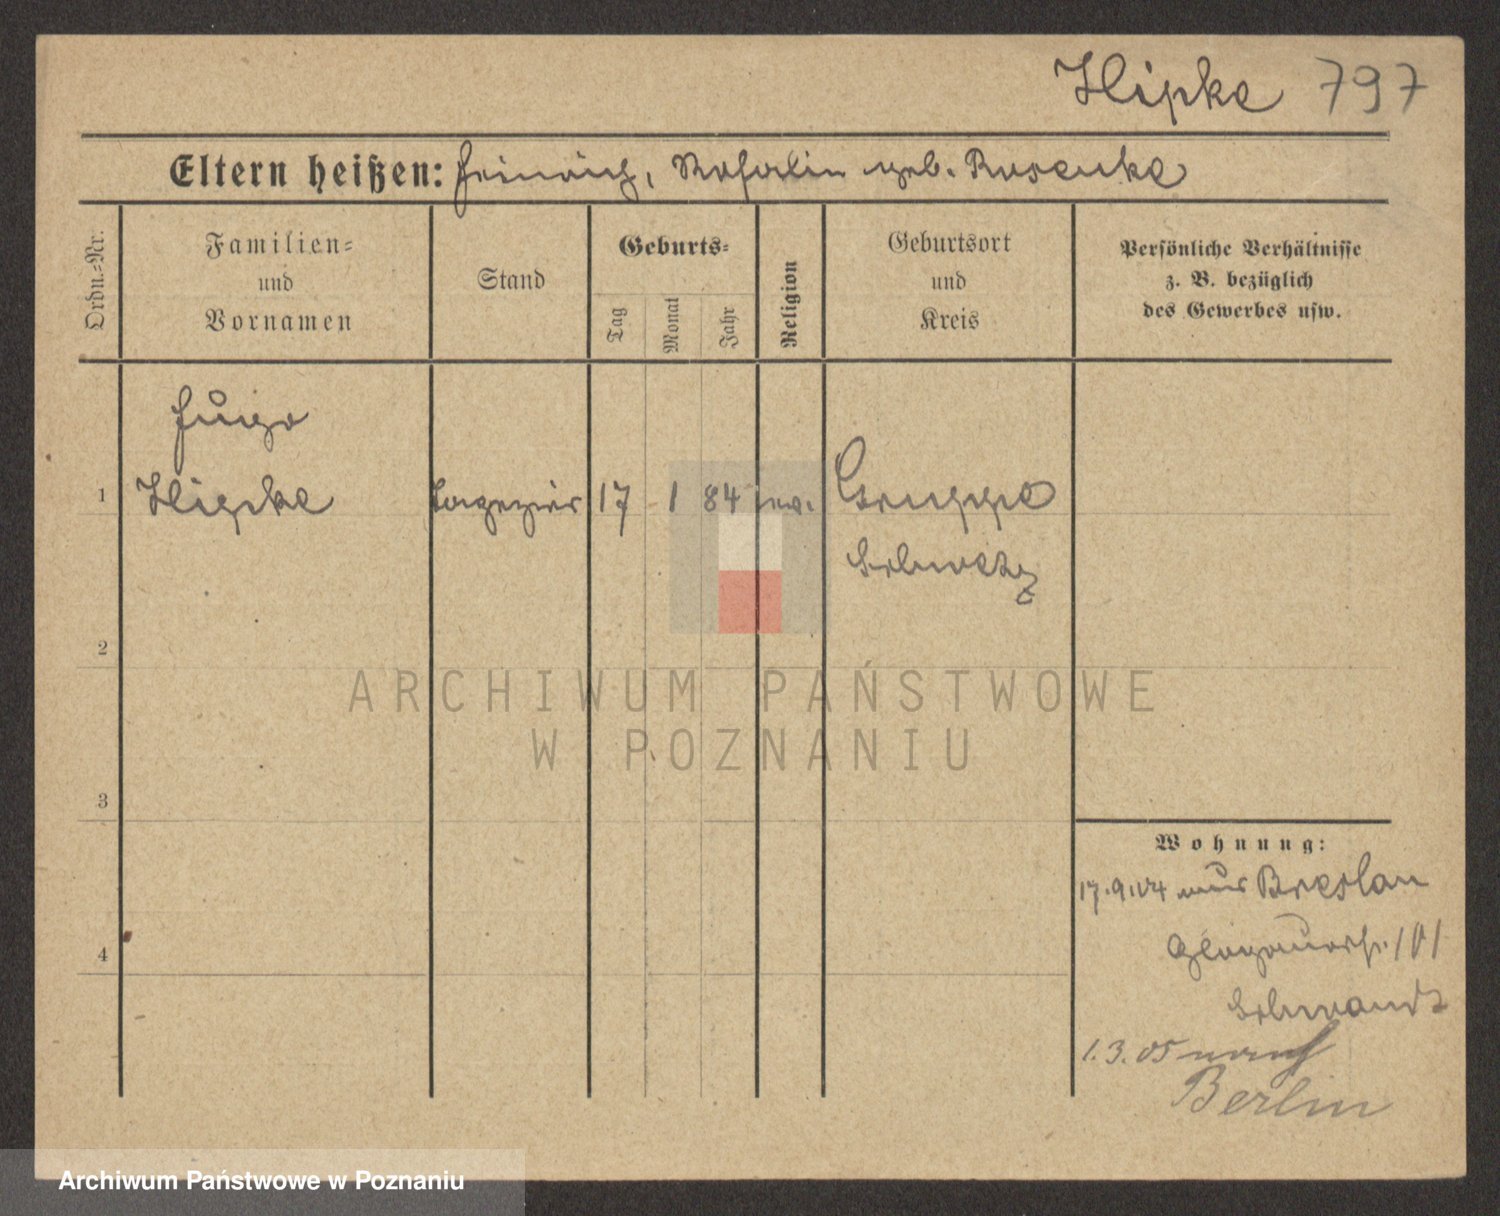 Hipke 797
Eltern heißen: Heinrich, Rosalie geb. Rosenke
Ordn.-Nr.
Familien-
und
Vornamen
Stand
Geburts-
Tag
Monat
Jahr
Religion
Geburtsort
und
Kreis
Persönliche Verhältnisse
z. B. bezüglich
des Gewerbes usw.
Hugo
1 Hipke Tapezier 17 1 84 ev. Gruppe
Schwetz
2
ARCHIWUM PAŃSTWOWE
W POZNANIU
3
Wohnung:
17.9.04 aus Breslau
4 Glogauerstr. 101
Schwandt
1.3.05 nach
Berlin
Archiwum Państwowe w Poznaniu